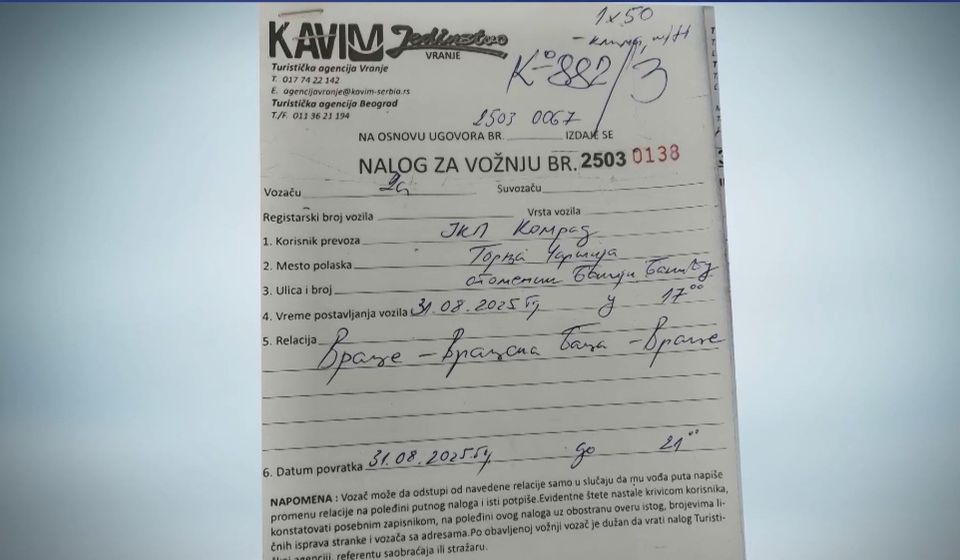 1 x 50
KAVIM Jedinstvo
VRANJE
K-882/3
Turistička agencija Vranje
T. 017 74 22 142
E. agencijavranje@kavim-serbia.rs
Turistička agencija Beograd
T./F. 011 36 21 194
2503 0067
NA OSNOVU UGOVORA BR. IZDAJE SE
NALOG ZA VOŽNJU BR. 2503 0138
Vozaču Suvozaču
Registarski broj vozila Vrsta vozila
1. Korisnik prevoza ЈКП Комрад
2. Mesto polaska Горња Чаршија
3. Ulica i broj споменик
4. Vreme postavljanja vozila 31.08.2025 у 17⁰⁰
5. Relacija Врање - Врањска Бања - Врање
6. Datum povratka 31.08.2025 до 21⁰⁰
NAPOMENA : Vozač može da odstupi od navedene relacije samo u slučaju da mu vođa puta napiše
promenu relacije na poleđini putnog naloga i isti potpiše.Evidentne štete nastale krivicom korisnika,
konstatovati posebnim zapisnikom, na poleđini ovog naloga uz obostranu overu istog, brojevima li-
čnih isprava stranke i vozača sa adresama.Po obavljenoj vožnji vozač je dužan da vrati nalog Turisti-
čkoj agenciji, referentu saobraćaja ili stražaru.